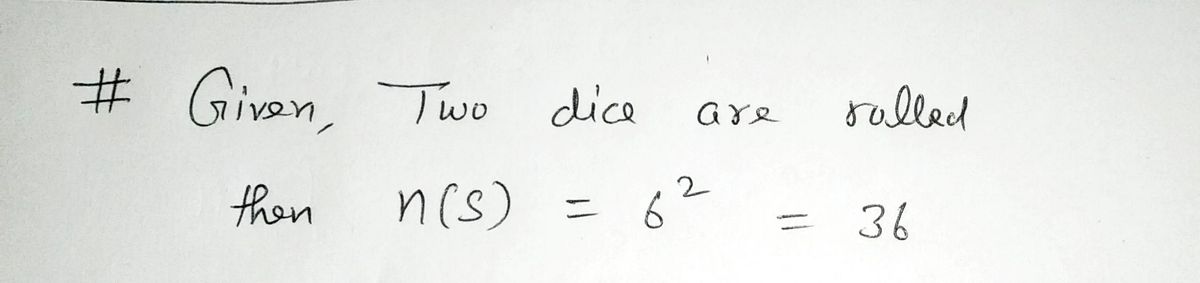 # Given, Two dice are rolled
then n(s) = 6² = 36